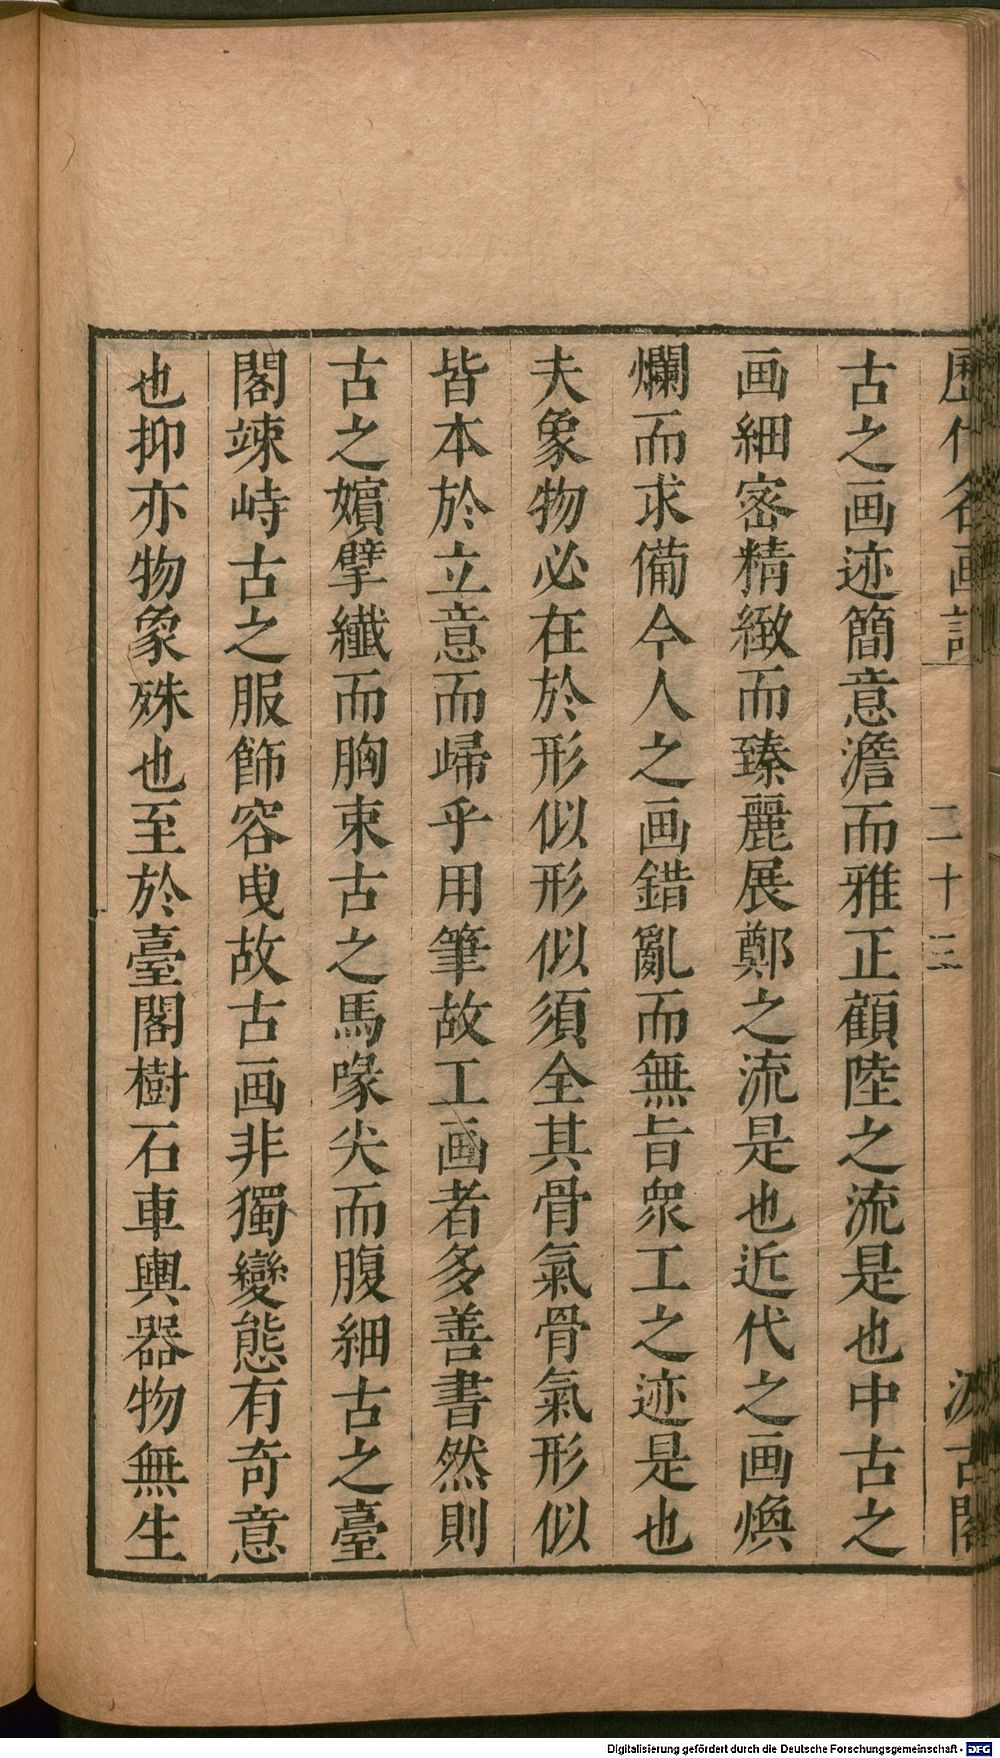 歷代名画記
二十三
汲古閣
古之画迹簡意澹而雅正顧陸之流是也中古之
画細密精緻而臻麗展鄭之流是也近代之画煥
爛而求備今人之画錯亂而無旨衆工之迹是也
夫象物必在於形似形似須全其骨氣骨氣形似
皆本於立意而歸乎用筆故工画者多善書然則
古之嬪擘纖而胸束古之馬喙尖而腹細古之臺
閣竦峙古之服飾容曳故古画非獨變態有奇意
也抑亦物象殊也至於臺閣樹石車輿器物無生
Digitalisierung gefördert durch die Deutsche Forschungsgemeinschaft - DFG